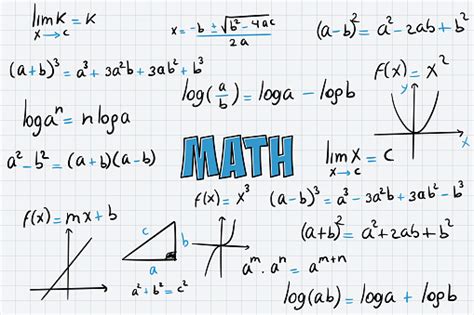 lim K = K
x→c
x = -b ± √b² - 4ac
2a
(a-b)² = a² - 2ab + b²
(a+b)³ = a³ + 3a²b + 3ab² + b³
f(x) = x²
y
x
log(a/b) = loga - logb
logaⁿ = nloga
MATH
a² - b² = (a+b)(a-b)
lim x = c
x→c
f(x) = x³
(a-b)³ = a³ - 3a²b + 3ab² - b³
f(x) = mx + b
c
b
a
a² + b² = c²
(a+b)² = a² + 2ab + b²
aᵐ . aⁿ = aᵐ⁺ⁿ
log(ab) = loga + logb